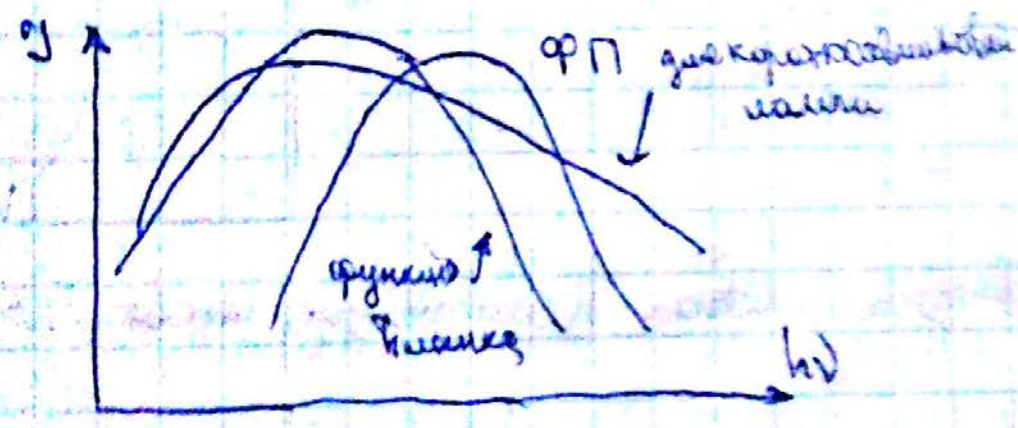 J
ФП для коротковолновой
лампы
функция
Планка
hν